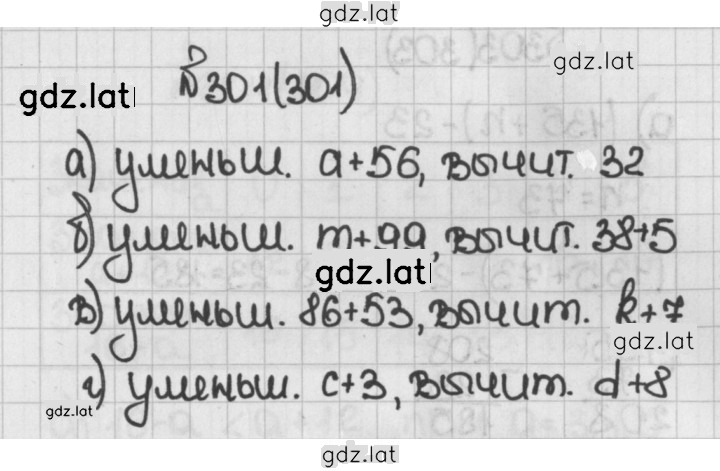 gdz.lat
№301(301)
gdz.lat
gdz.lat
а) уменьш. a+56, вычит. 32
б) уменьш. m+99, вычит. 38+5
gdz.lat
в) уменьш. 86+53, вычит. k+7
gdz.lat
г) уменьш. c+3, вычит. d+8
gdz.lat
gdz.lat